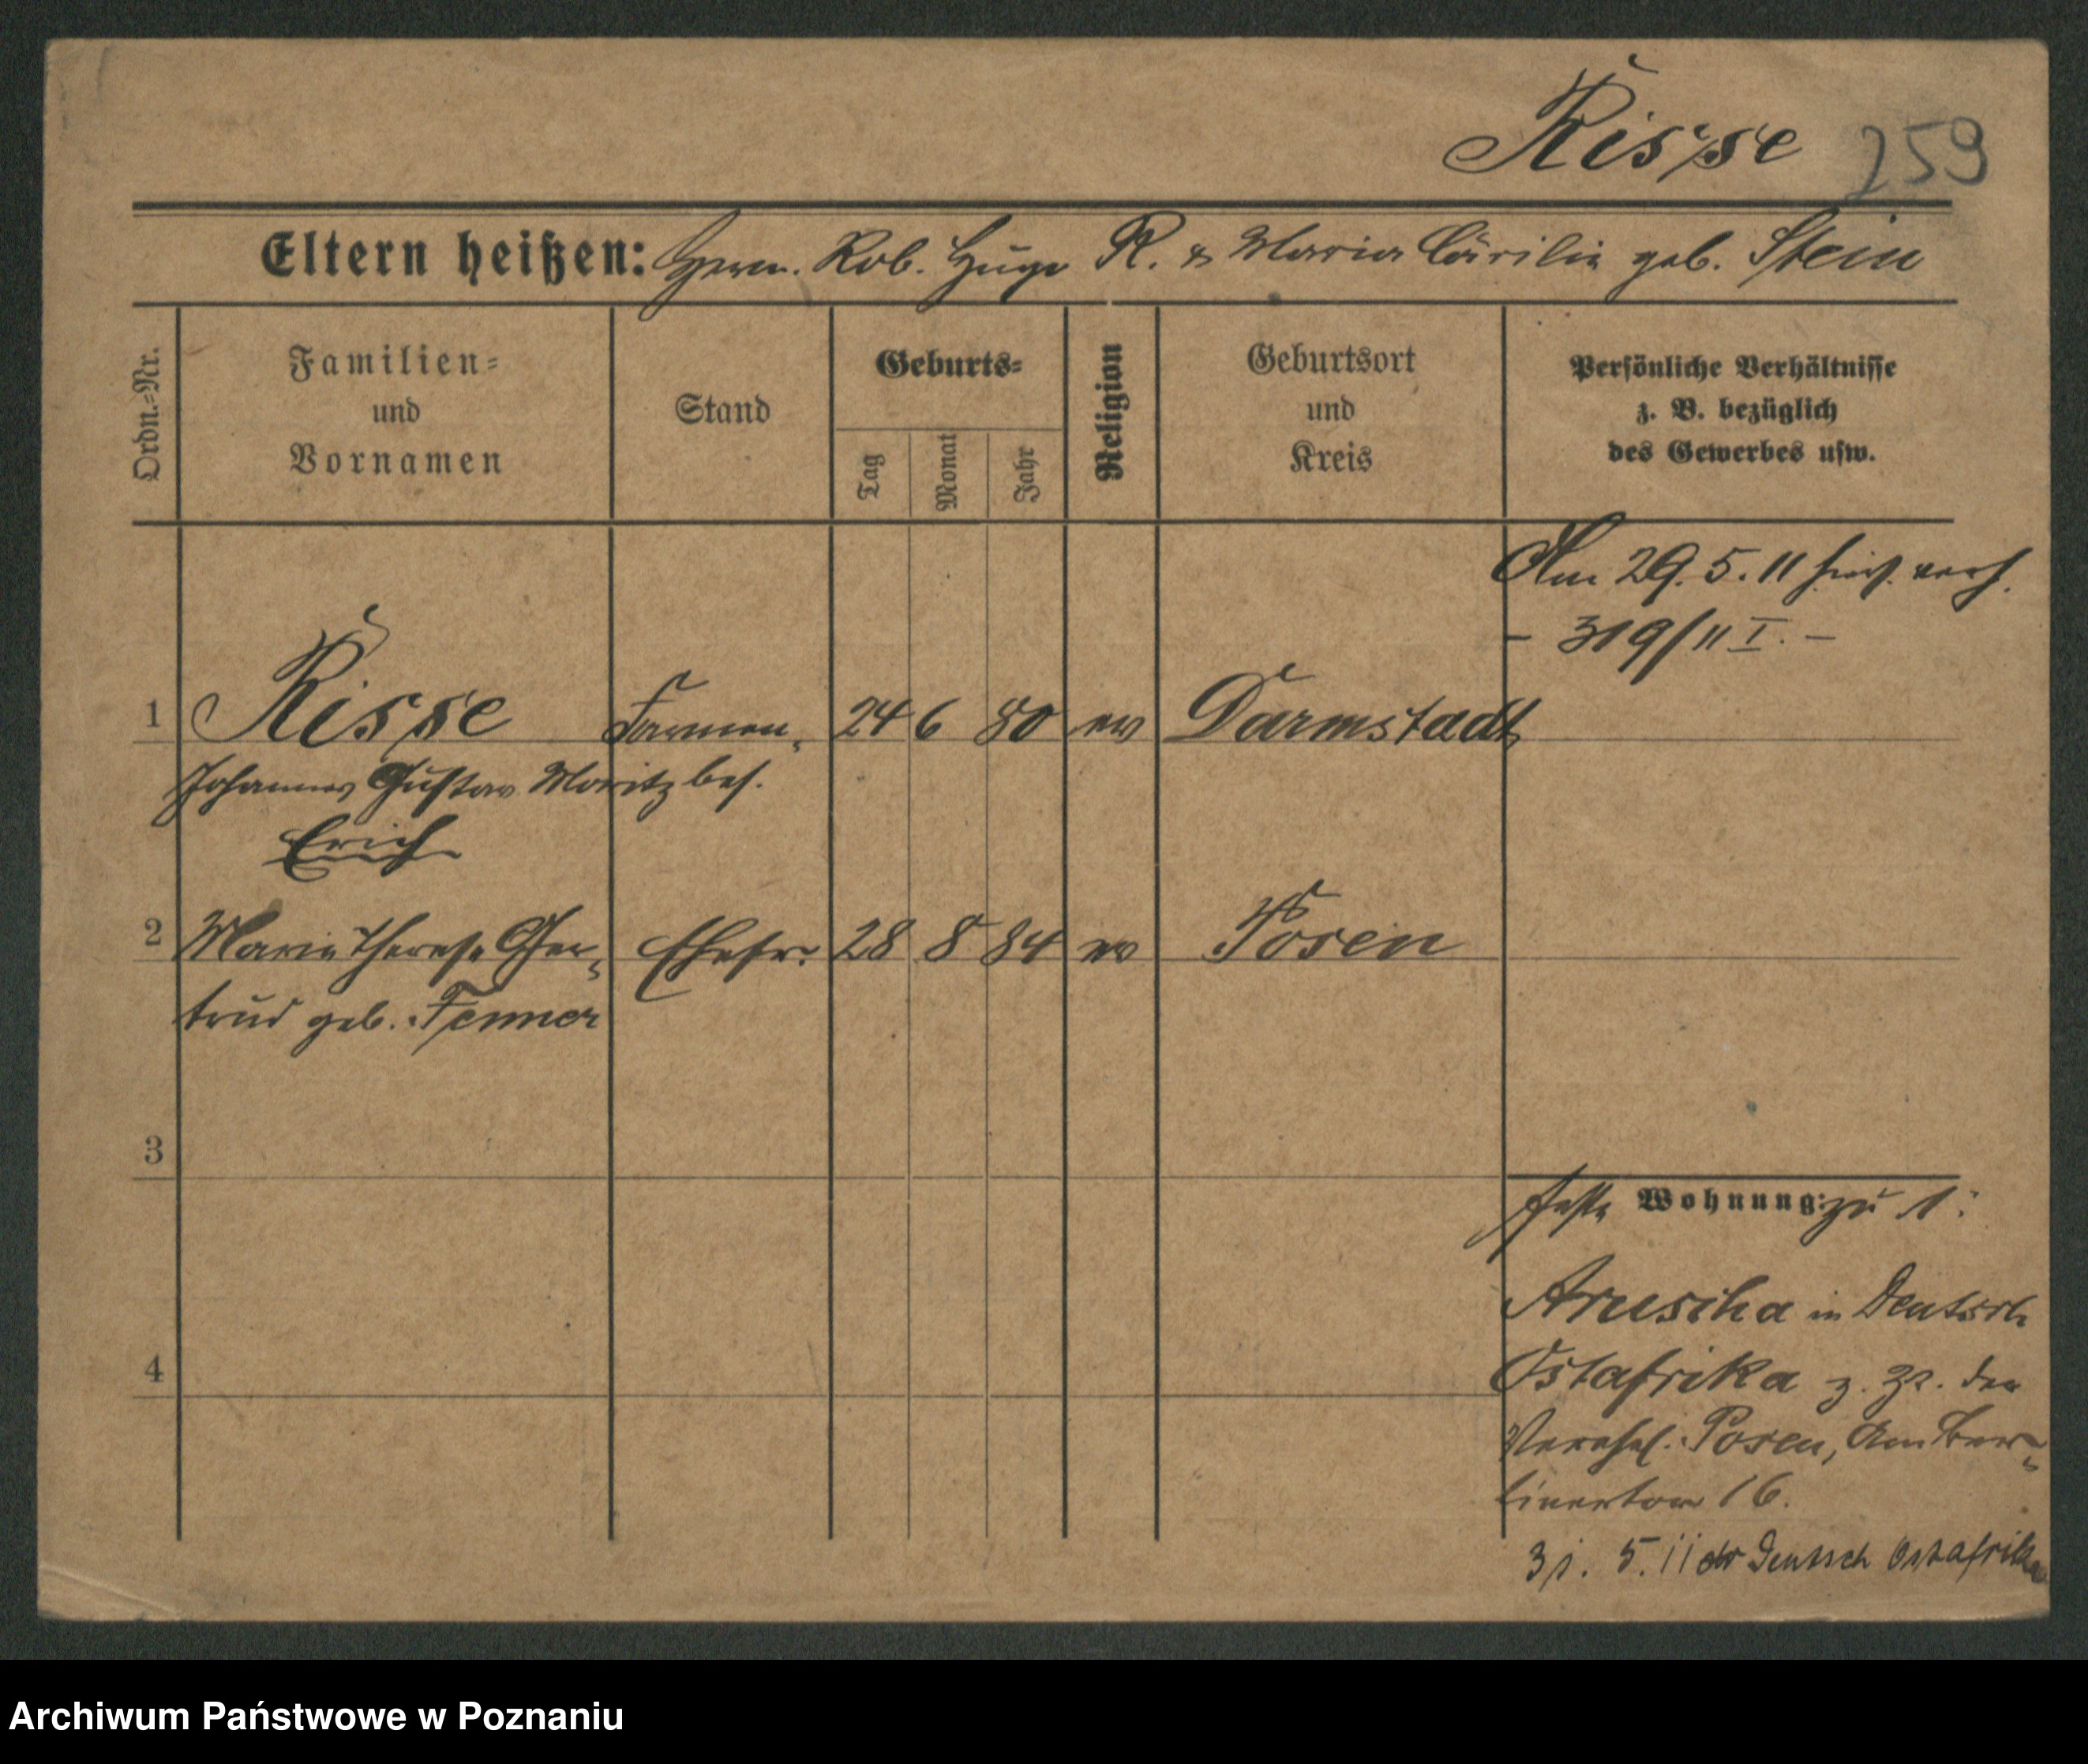 Risse 259
Eltern heißen: Herm. Rob. Hugo R. & Maria Cäcilie geb. Stein
Ordn.-Nr.
Familien=
und
Vornamen
Stand
Geburts=
Tag
Monat
Jahr
Religion
Geburtsort
und
Kreis
Persönliche Verhältnisse
z. B. bezüglich
des Gewerbes usw.
Am 29. 5. 11 hier verh.
- 319/11 I. -
1 Risse Farmen- 24 6 80 ev Darmstadt
Johannes Gustav Moritz bes.
Erich
2 Marie Therese Ger- Ehefr. 28 8 84 ev Posen
trud geb. Fenner
3
feste Wohnung: zu 1:
Aruscha in Deutsch
4 Ostafrika z. Zt. der
Posen, Am Ber-
linertor 16.
31. 5. 11 Deutsch Ostafrika
Archiwum Państwowe w Poznaniu